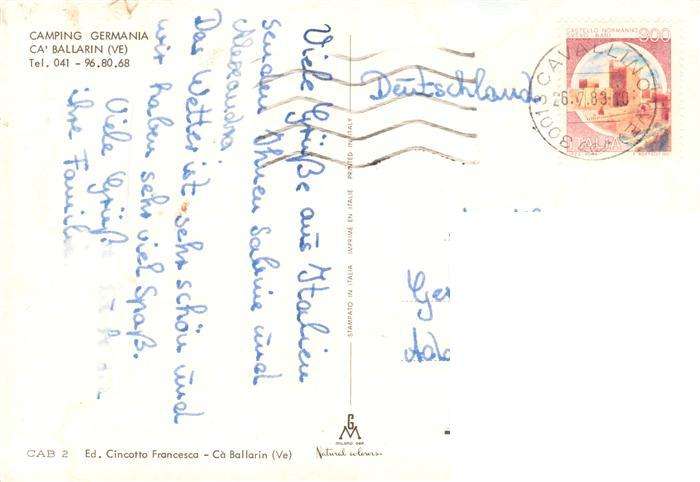 CAMPING GERMANIA
CA' BALLARIN (VE)
Tel. 041 - 96.80.68
Viele Grüße aus Italien
senden Ihnen Sabine und
Alexandra
Das Wetter ist sehr schön und
wir haben sehr viel Spaß.
Viele Grüße
ihre Familie
STAMPATO IN ITALIA IMPRIMÉ EN ITALIE PRINTED IN ITALY
Deutschland
CASTELLO NORMANNO
300
CAVALLINO
30013
GM
MILANO
Natural colours
CAB 2 Ed. Cincotto Francesca - Cà Ballarin (Ve)